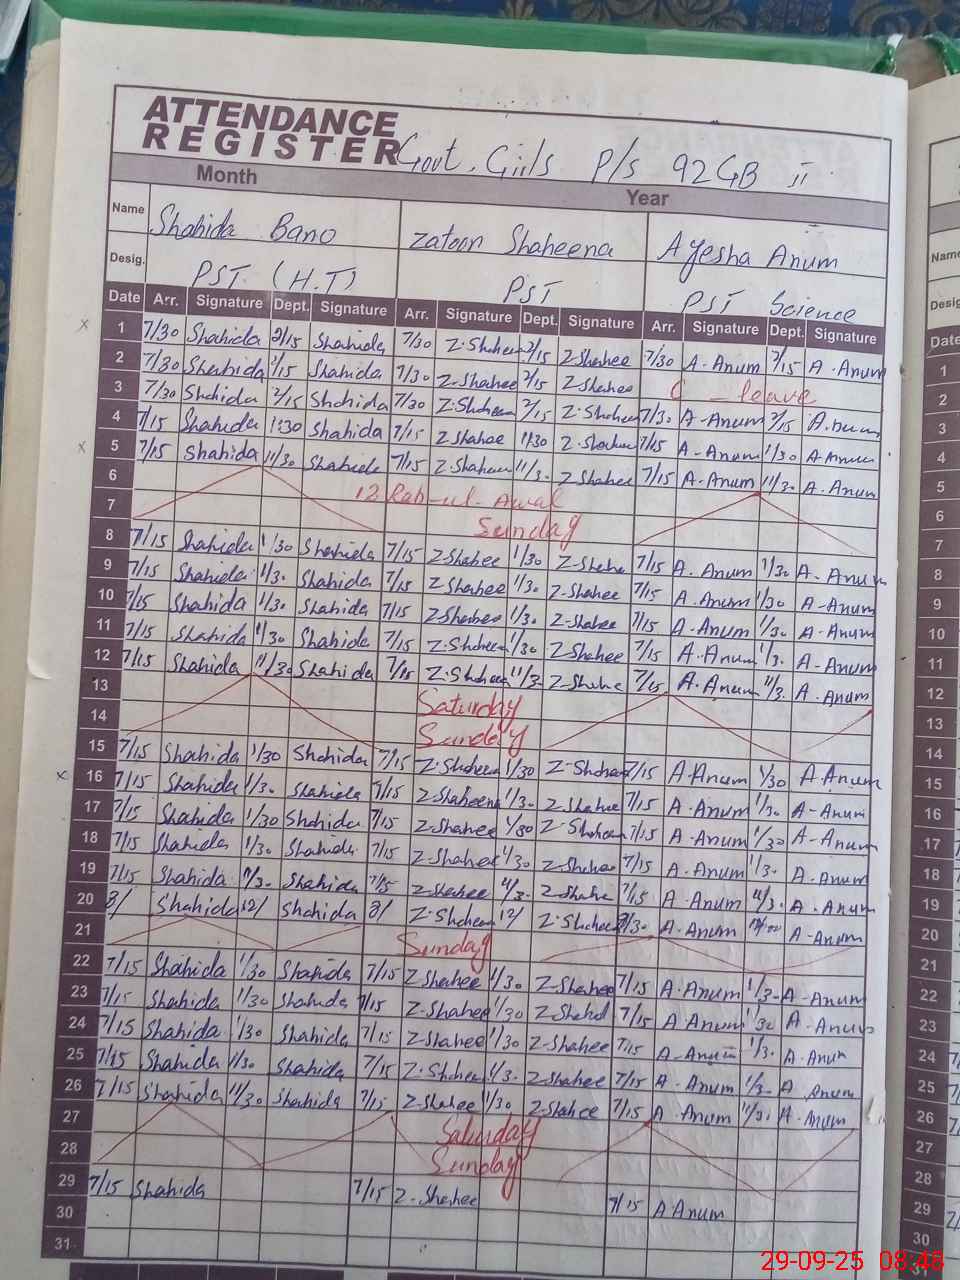 ATTENDANCE
REGISTER Govt. Girls P/S 92 GB II
Month Year
Name Shahida Bano Zatoon Shaheena Ayesha Anum
Desig. PST (H.T) PST PST Science
Date Arr. Signature Dept. Signature Arr. Signature Dept. Signature Arr. Signature Dept. Signature
1 7/30 Shahida 2/15 Shahida 7/30 Z-Shaheen 2/15 Z Shahee 7/30 A-Anum 2/15 A-Anum
2 7/30 Shahida 2/15 Shahida 7/30 Z-Shahee 2/15 Z Shahee C-leave
3 7/30 Shahida 2/15 Shahida 7/30 Z-Shaheen 2/15 Z-Shaheen 7/30 A-Anum 2/15 A.Anum
4 7/15 Shahida 11/30 Shahida 7/15 Z Shahee 11/30 Z-Shaheen 7/15 A-Anum 1/30 A-Anum
5 7/15 Shahida 11/30 Shahida 7/15 Z-Shaheen 11/30 Z Shahee 7/15 A-Anum 11/30 A-Anum
6 12 Rab-ul-Awal
7 Sunday
8 7/15 Shahida 1/30 Shahida 7/15 Z Shahee 1/30 Z-Shahe 7/15 A.Anum 1/30 A-Anum
9 7/15 Shahida 1/30 Shahida 7/15 Z Shahee 1/30 Z-Shahee 7/15 A.Anum 1/30 A-Anum
10 7/15 Shahida 1/30 Shahida 7/15 Z Shahee 1/30 Z-Shahee 7/15 A-Anum 1/30 A-Anum
11 7/15 Shahida 1/30 Shahida 7/15 Z-Shaheen 1/30 Z-Shahee 7/15 A-Anum 1/30 A-Anum
12 7/15 Shahida 11/30 Shahida 7/15 Z-Shaheen 11/30 Z-Shahe 7/15 A-Anum 11/30 A.Anum
13 Saturday
14 Sunday
15 7/15 Shahida 1/30 Shahida 7/15 Z-Shaheen 1/30 Z-Shaheen 7/15 A.Anum 1/30 A.Anum
16 7/15 Shahida 1/30 Shahida 7/15 Z Shaheena 1/30 Z-Shahee 7/15 A-Anum 1/30 A-Anum
17 7/15 Shahida 1/30 Shahida 7/15 Z-Shahee 1/30 Z-Shaheen 7/15 A-Anum 1/30 A-Anum
18 7/15 Shahida 1/30 Shahida 7/15 Z-Shahee 1/30 Z-Shahee 7/15 A.Anum 1/30 A.Anum
19 7/15 Shahida 11/30 Shahida 7/15 Z-Shahee 11/30 Z-Shahe 7/15 A-Anum 11/30 A-Anum
20 8/ Shahida 12/ Shahida 8/ Z-Shaheen 12/ Z-Shaheen A-Anum A-Anum
21 Sunday
22 7/15 Shahida 1/30 Shahida 7/15 Z Shahee 1/30 Z-Shahee 7/15 A-Anum 1/30 A-Anum
23 7/15 Shahida 1/30 Shahida 7/15 Z-Shahee 1/30 Z-Shahd 7/15 A Anum 1/30 A-Anum
24 7/15 Shahida 1/30 Shahida 7/15 Z-Shahee 1/30 Z-Shahee 7/15 A-Anum 1/30 A-Anum
25 7/15 Shahida 1/30 Shahida 7/15 Z-Shahee 1/30 Z-Shahee 7/15 A-Anum 1/30 A.Anum
26 7/15 Shahida 11/30 Shahida 7/15 Z-Shahee 11/30 Z-Shahee 7/15 A-Anum 11/30 A-Anum
27 Saturday
28 Sunday
29 7/15 Shahida 7/15 Z-Shahee 7/15 A.Anum
30
31
29-09-25 08:48